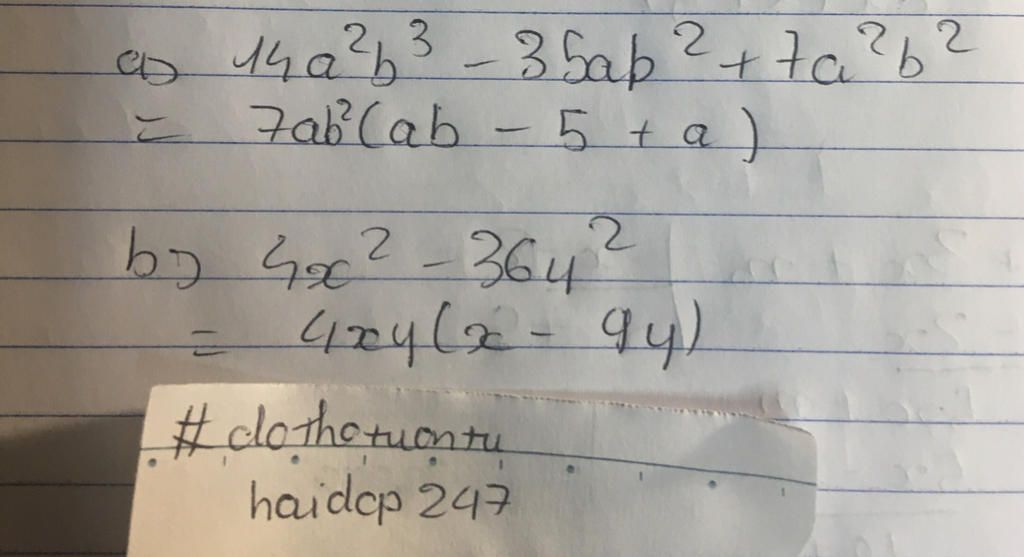 a) 14a²b³ - 35ab² + 7a²b²
= 7ab²(ab - 5 + a)
b) 4x² - 36y²
= 4xy(x - 9y)
#dothotuontu
haidcp247